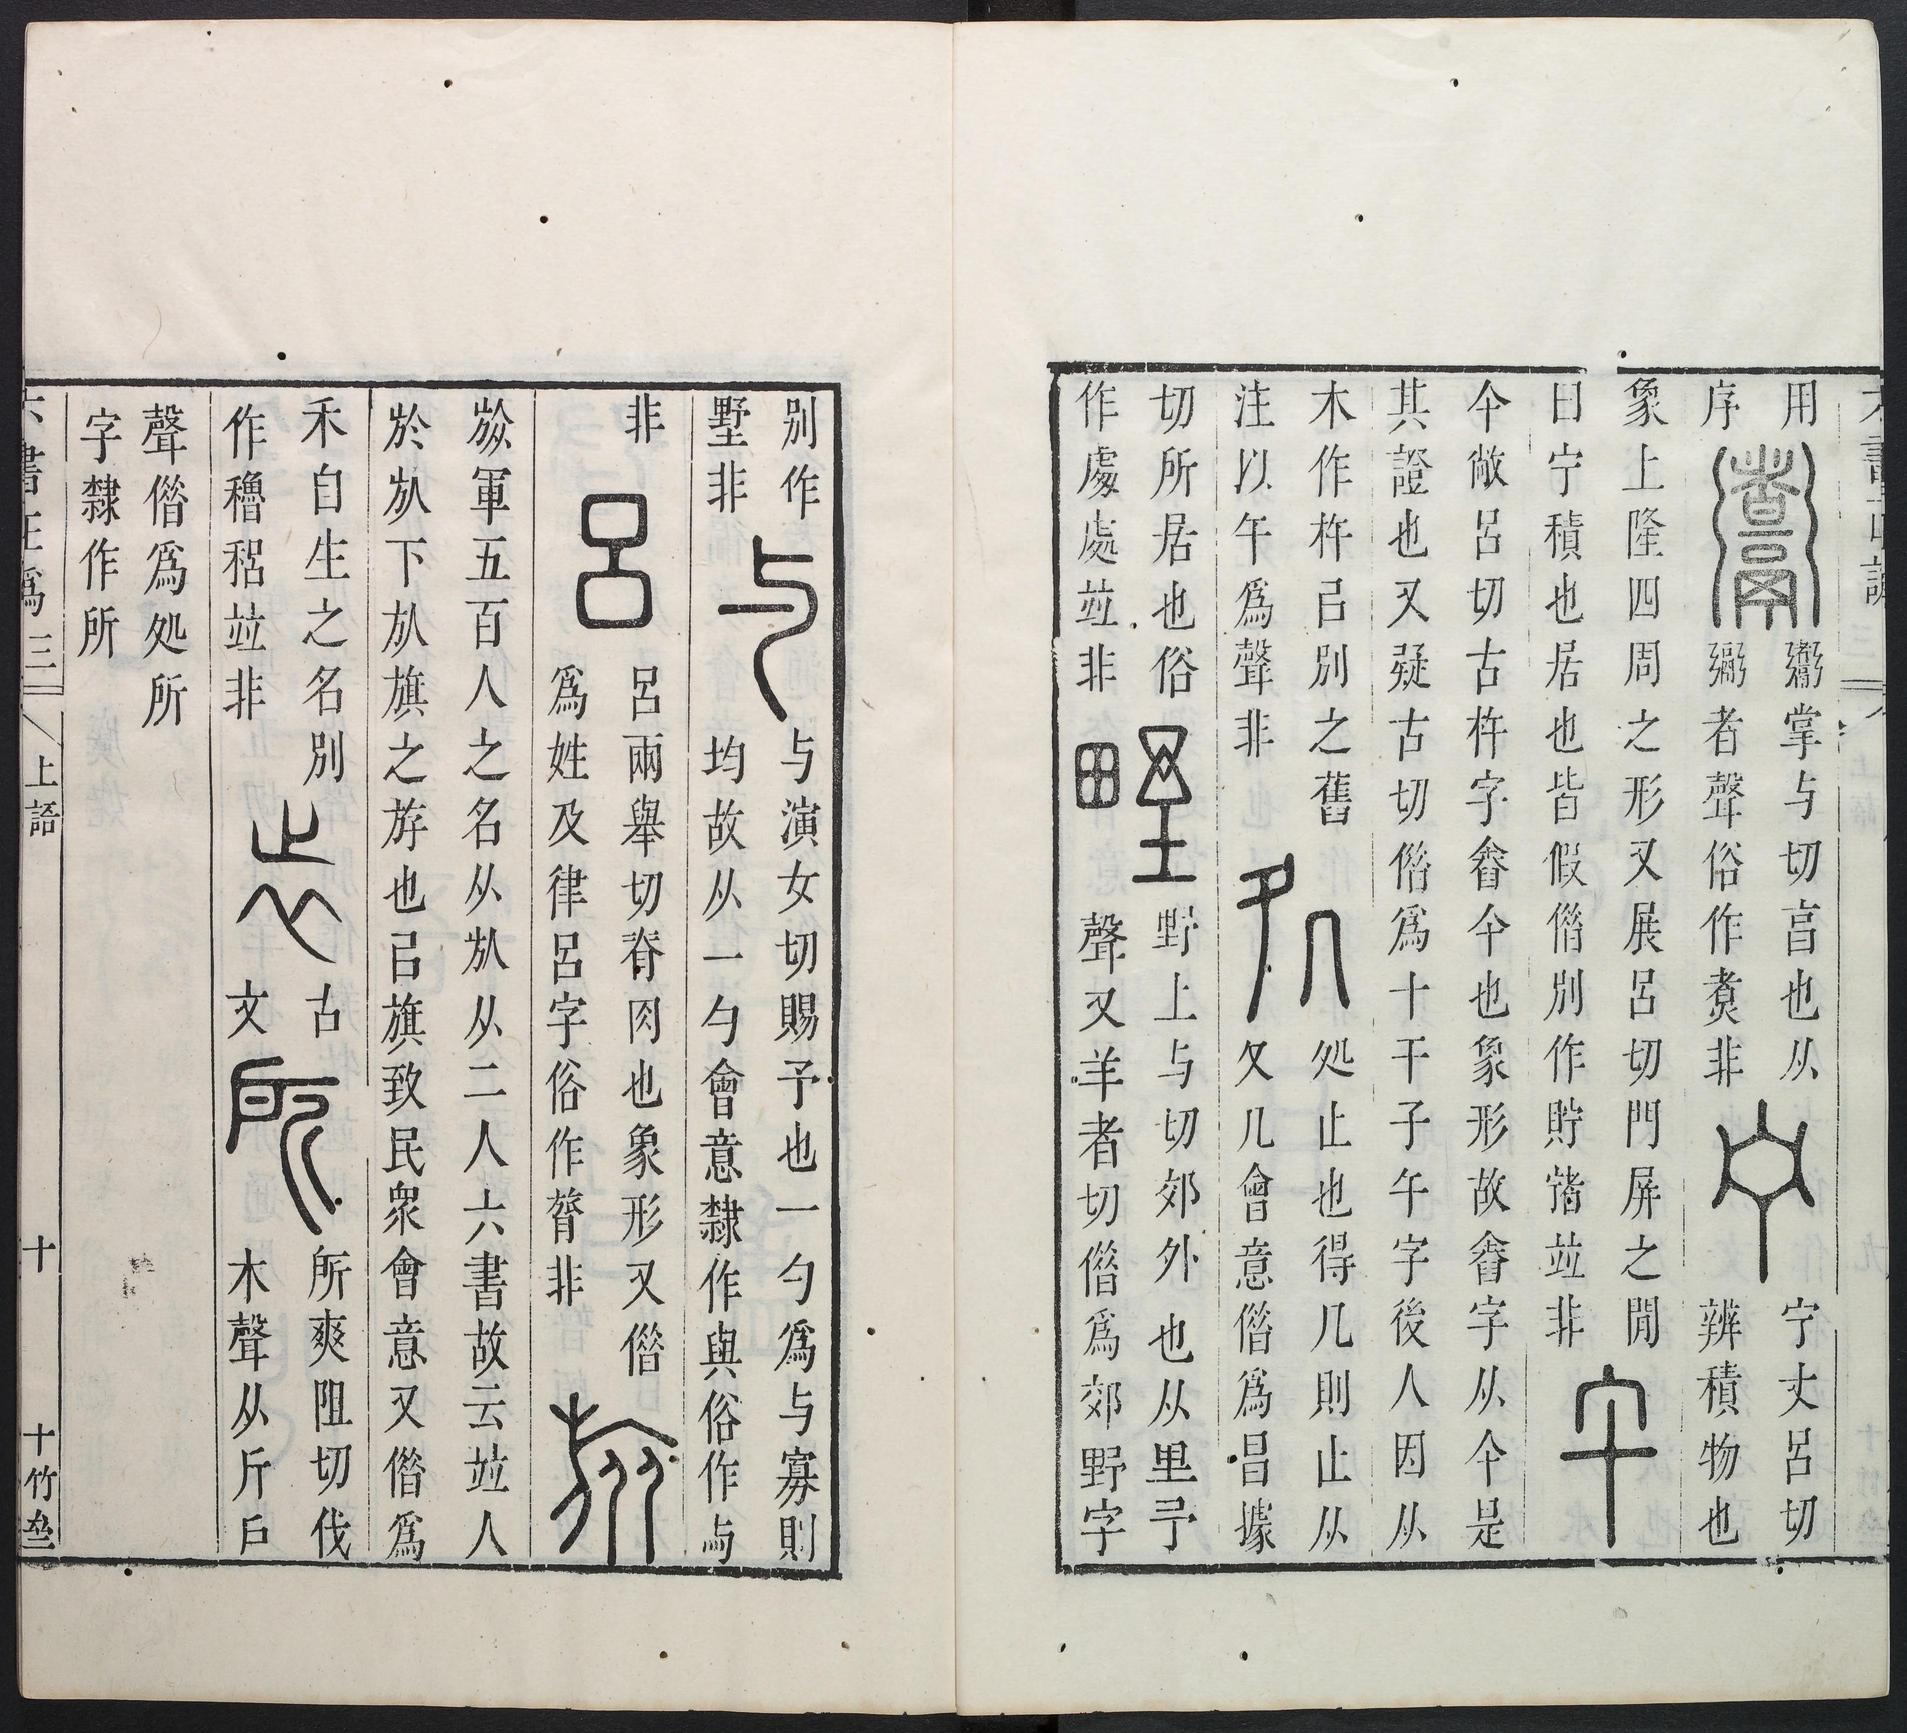 用
序
鬻掌与切亯也从
䰜者聲俗作煑非
宁丈呂切
辨積物也
象上隆四周之形又展呂切門屏之閒
曰宁積也居也皆假偺別作貯㡯竝非
午敞呂切古杵字舂午也象形故舂字从午是
其證也又疑古切偺爲十干子午字後人因从
木作杵㠯別之舊
注以午爲聲非
処止也得几則止从
夂几會意偺爲昌據
切所居也俗
作處䖏竝非
野上与切郊外也从里予
聲又羊者切偺爲郊野字
別作
墅非
与演女切賜予也一勺爲与寡則
均故从一勺會意隸作與俗作与
非
呂兩舉切脊肉也象形又偺
爲姓及律呂字俗作膂非
㫃軍五百人之名从㫃从二人六書故云竝人
於㫃下㫃旗之斿也㠯旗致民衆會意又偺爲
禾自生之名別
作穭稆竝非
古
文
所爽阻切伐
木聲从斤戶
聲偺爲処所
字隸作所
六書正譌 三
上語
十
十竹